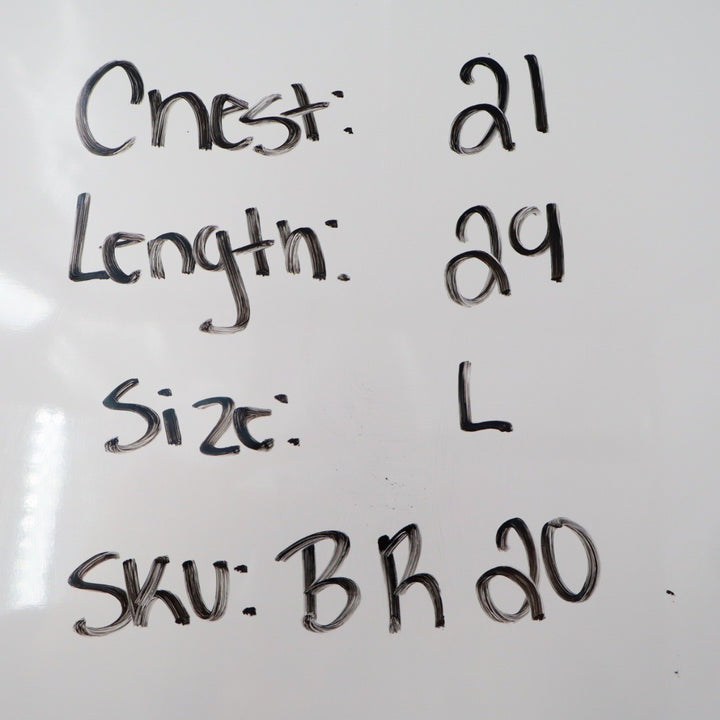 Chest: 21
Length: 29
Size: L
SKU: BR20